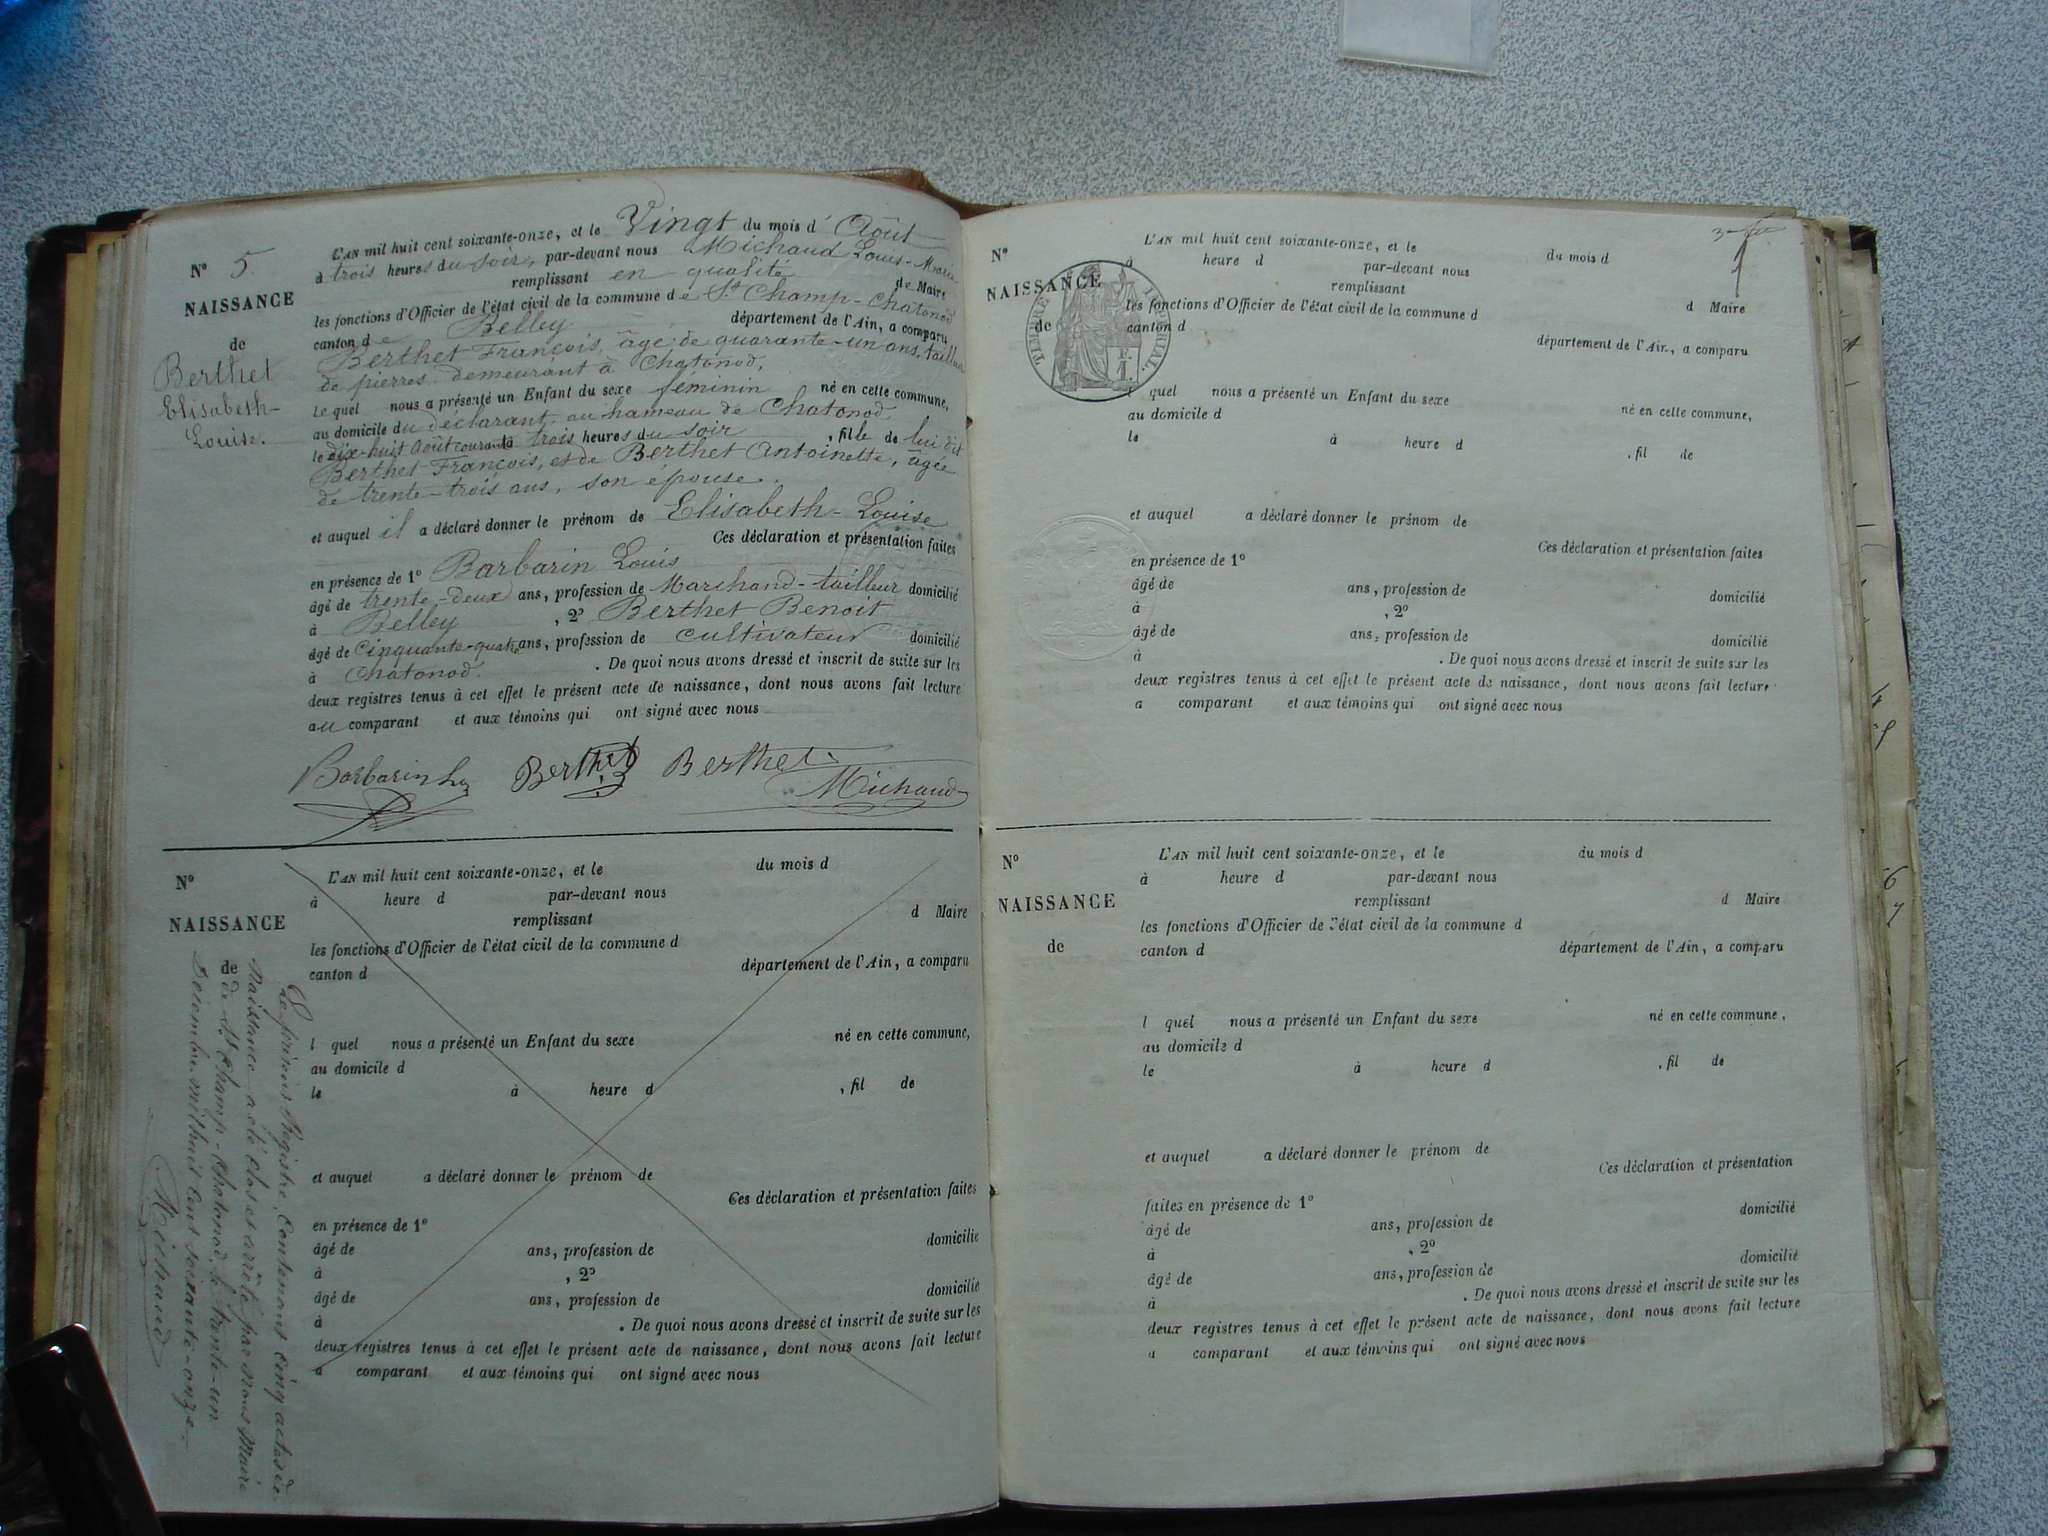 N° 5.
NAISSANCE
de
Berthet
Elisabeth-
Louise.
L'AN mil huit cent soixante-onze, et le Vingt du mois d' Août
à trois heures du soir, par-devant nous Michaud Louis-Marie
remplissant en qualité de Maire
les fonctions d'Officier de l'état civil de la commune de St Champ-Chatonod
canton de Belley département de l'Ain, a comparu
Berthet François, âgé de quarante-un ans, tailleur
de pierres demeurant à Chatonod,
Le quel nous a présenté un Enfant du sexe feminin né en cette commune,
au domicile du déclarant au hameau de Chatonod
le dix-huit Août courant à trois heures du soir, fille de lui dit
Berthet François, et de Berthet Antoinette, âgée
de trente-trois ans, son épouse.
et auquel il a déclaré donner le prénom de Elisabeth-Louise
Ces déclaration et présentation faites
en présence de 1° Barbarin Louis
âgé de trente-deux ans, profession de Marchand-tailleur domicilié
à Belley, 2° Berthet Benoit
âgé de Cinquante-quatre ans, profession de cultivateur domicilié
à Chatonod. De quoi nous avons dressé et inscrit de suite sur les
deux registres tenus à cet effet le présent acte de naissance, dont nous avons fait lecture
au comparant et aux témoins qui ont signé avec nous
Barbarin Ls Berthet Berthet
Michaud
N°
NAISSANCE
de
L'AN mil huit cent soixante-onze, et le du mois d
à heure d par-devant nous
remplissant d Maire
les fonctions d'Officier de l'état civil de la commune d
canton d département de l'Ain, a comparu
l quel nous a présenté un Enfant du sexe né en cette commune,
au domicile d
le à heure d , fil de
et auquel a déclaré donner le prénom de
Ces déclaration et présentation faites
en présence de 1°
âgé de ans, profession de domicilié
à , 2°
âgé de ans, profession de domicilié
à . De quoi nous avons dressé et inscrit de suite sur les
deux registres tenus à cet effet le présent acte de naissance, dont nous avons fait lecture
a comparant et aux témoins qui ont signé avec nous
Le présent Registre, Contenant cinq actes de
Naissance a été clos et arrêté par nous Maire
de St Champ-Chatonod, le trente-un
Décembre mil huit cent soixante-onze.
Michaud
N°
NAISSANCE
de
TIMBRE IMPERIAL.
F.
1.
L'AN mil huit cent soixante-onze, et le du mois d
à heure d par-devant nous
remplissant d Maire
les fonctions d'Officier de l'état civil de la commune d
canton d département de l'Ain, a comparu
l quel nous a présenté un Enfant du sexe né en cette commune,
au domicile d
le à heure d , fil de
et auquel a déclaré donner le prénom de
Ces déclaration et présentation faites
en présence de 1°
âgé de ans, profession de domicilié
à , 2°
âgé de ans, profession de domicilié
à . De quoi nous avons dressé et inscrit de suite sur les
deux registres tenus à cet effet le présent acte de naissance, dont nous avons fait lecture
a comparant et aux témoins qui ont signé avec nous
N°
NAISSANCE
de
L'AN mil huit cent soixante-onze, et le du mois d
à heure d par-devant nous
remplissant d Maire
les fonctions d'Officier de l'état civil de la commune d
canton d département de l'Ain, a comparu
l quel nous a présenté un Enfant du sexe né en cette commune,
au domicile d
le à heure d , fil de
et auquel a déclaré donner le prénom de
Ces déclaration et présentation
faites en présence de 1°
âgé de ans, profession de domicilié
à , 2°
âgé de ans, profession de domicilié
à . De quoi nous avons dressé et inscrit de suite sur les
deux registres tenus à cet effet le présent acte de naissance, dont nous avons fait lecture
a comparant et aux témoins qui ont signé avec nous